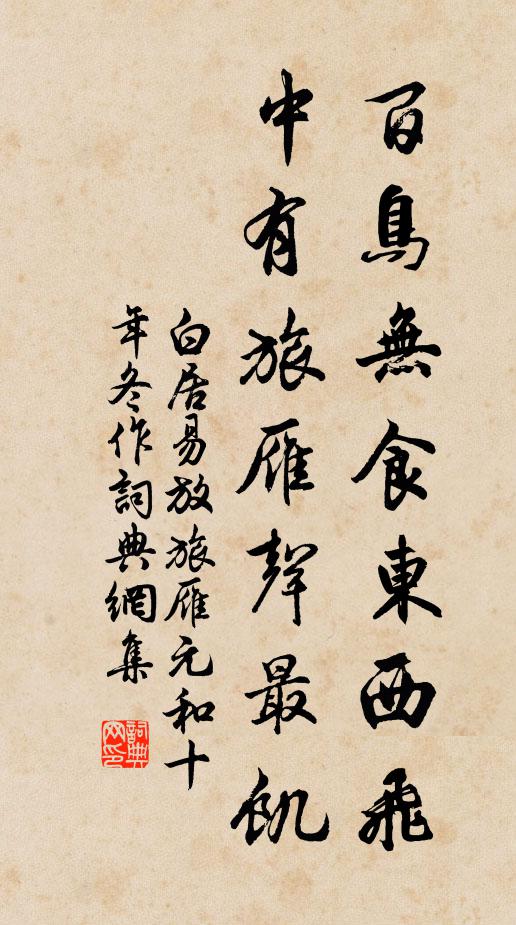 百鳥無食東西飛
中有旅雁聲最飢
白居易放旅雁元和十
年冬作詞典網集
詞典
网印